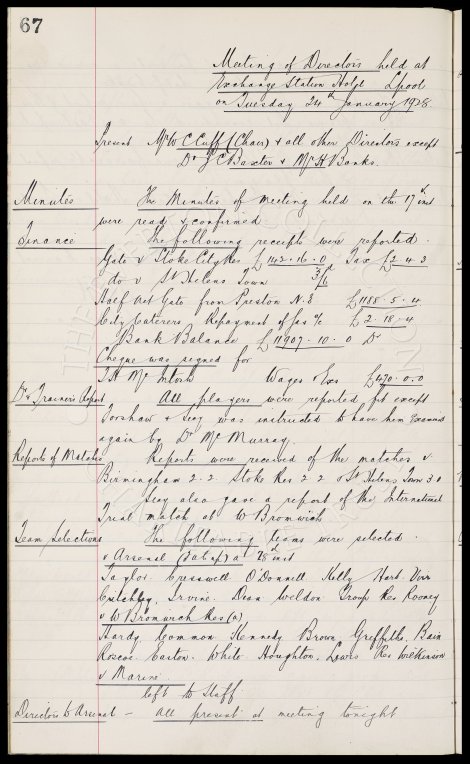 67
Meeting of Directors held at
Exchange Station Hotel Lpool
on Tuesday 24th January 1928
Present Mr W C Cuff (Chair) & all other Directors except
Dr J C Baxter & Mr H Banks.
Minutes The Minutes of meeting held on the 17th inst
were read & confirmed.
Finance The following receipts were reported.
Gate v Stoke City Res £142.16.0 Tax £2.4.3
do v St Helens Town 3/6
Half Net Gate from Preston N.E £1188.5.4
City Caterers Repayment of Gas % £2.18.4
Bank Balance £11907.10.0 Dr
Cheque was signed for
T. H. McIntosh Wages & Exs £470.0.0
Dr & Trainers Report All players were reported fit except
Forshaw & Seey was instructed to have him Examined
again by Dr McMurray.
Reports of Matches Reports were received of the matches v
Birmingham 2.2 Stoke Res 2.2 v St Helens Town 3.0
Secy also gave a report of the International
Trial match at W Bromwich
Team Selections The following teams were selected.
v Arsenal a 28th inst
Taylor. Cresswell O'Donnell Kelly Hart. Virr
Critchley, Irvine. Dean Weldon Troup Res Rooney
v W Bromwich Res (a)
Hardy Common Kennedy Brown Griffiths, Bain
Roscoe. Easton. White Houghton, Lewis Res Wilkinson
v Marine
left to Staff
Directors to Arsenal – all present at meeting tonight